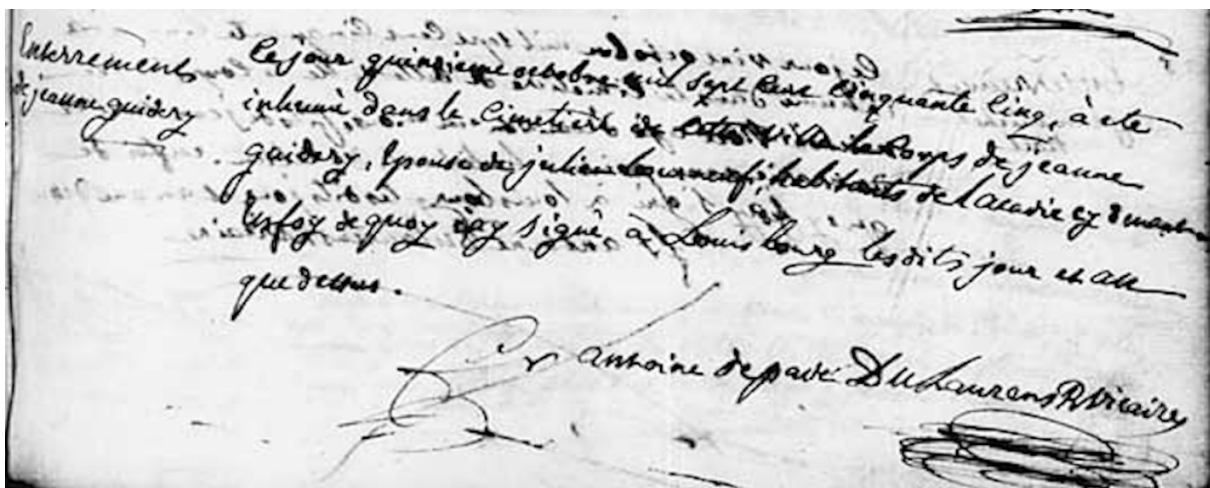 Enterrements
de jeanne guidery
Ce jour quinzieme octobre mil sept cent cinquante cinq, à eté
inhumé dans le cimetiere de cette ville le corps de jeanne
guidery, Epouse de julien habitants de Lacadie cy d
En foy de quoy jay signé à Louisbourg les dits jour et an
que dessus.
antoine de padé DuLaurens R Vicaire